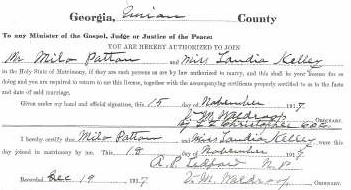 Georgia, Union County
To any Minister of the Gospel, Judge or Justice of the Peace:
YOU ARE HEREBY AUTHORIZED TO JOIN
Mr Milo Patton and Miss Landia Kelley
in the Holy State of Matrimony, if they are such persons as are by law authorized to marry, and this shall be your license for so
doing and you are required to return to me this license, together with the accompanying certificate properly certified to as to the facts
and date of said marriage.
Given under my hand and official signature, this 15 day of November 1917
ORDINARY.
By Christopher
I hereby certify that Milo Patton and Miss Landia Kelley were this
day joined in matrimony by me. This 18 day of November 1917
A. P. Ledford
Recorded Dec 19 1917 ORDINARY.